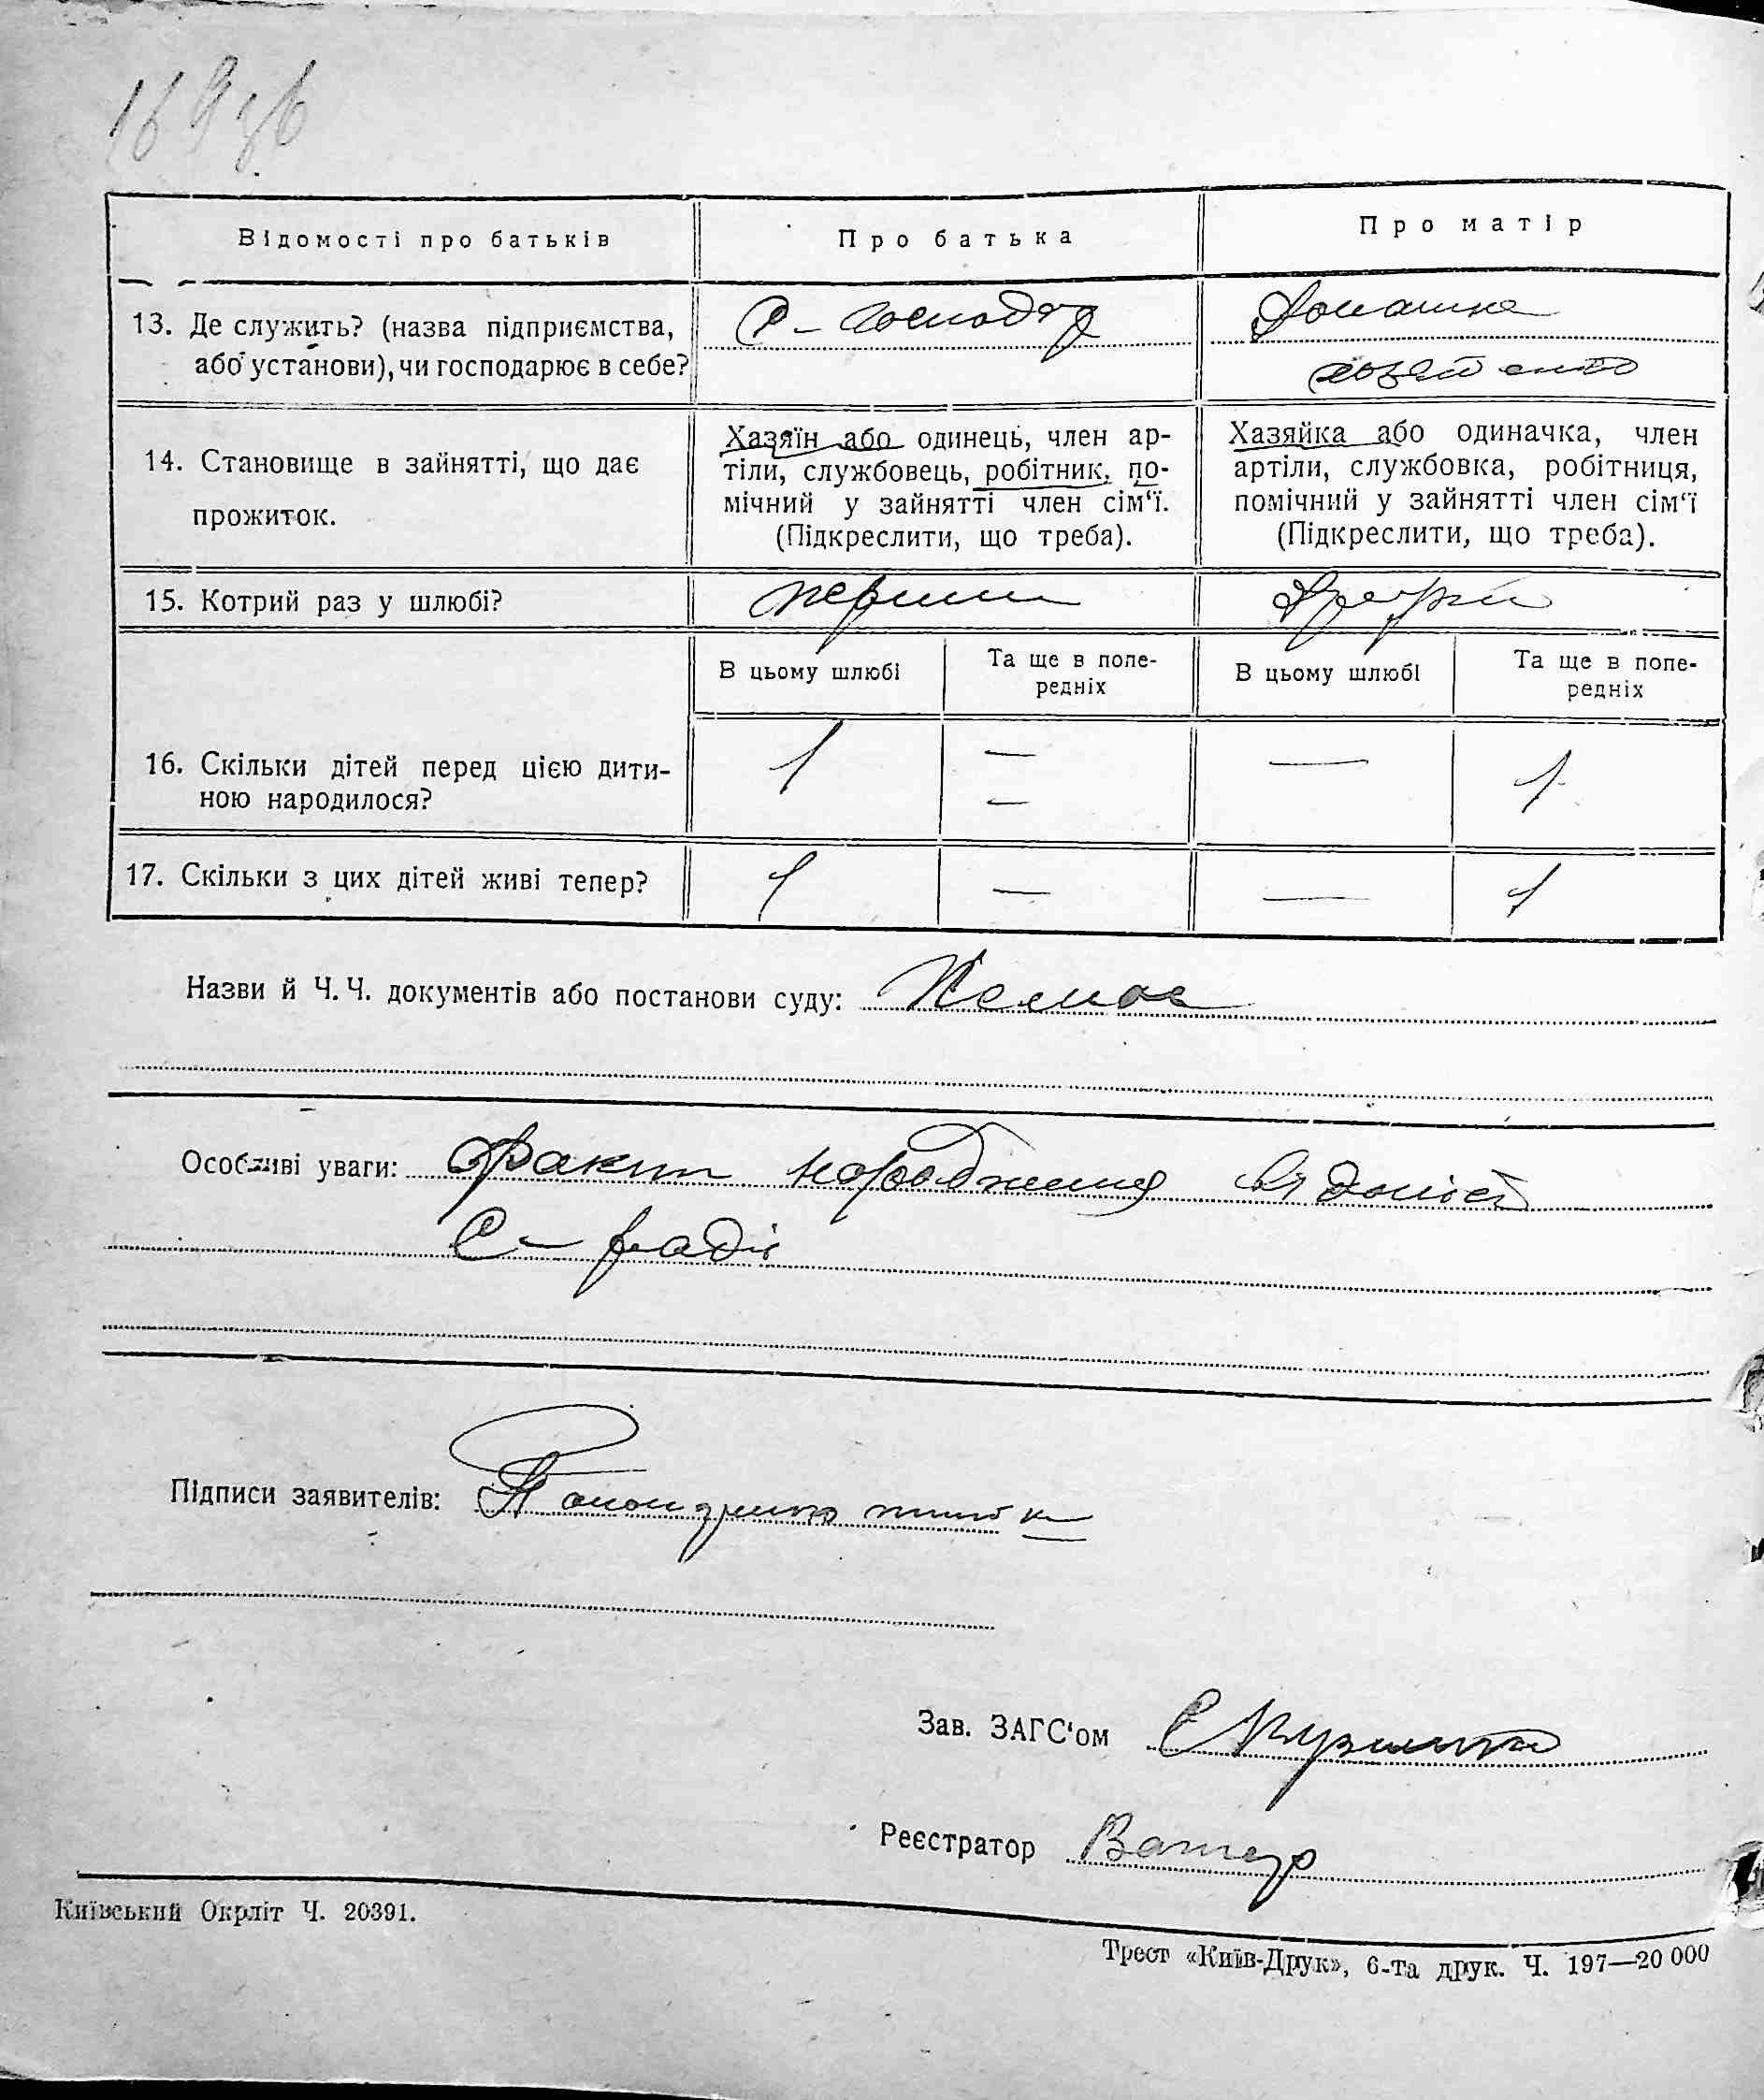 169зв
Відомості про батьків
Про батька
Про матір
13. Де служить? (назва підприємства,
або установи), чи господарює в себе?
С-господар
Домашнє
хозяйство
14. Становище в зайнятті, що дає
прожиток.
Хазяїн або одинець, член ар-
тіли, службовець, робітник, по-
мічний у зайнятті член сім‘ї.
(Підкреслити, що треба).
Хазяйка або одиначка, член
артіли, службовка, робітниця,
помічний у зайнятті член сім‘ї
(Підкреслити, що треба).
15. Котрий раз у шлюбі?
перший
другий
В цьому шлюбі
Та ще в попе-
редніх
В цьому шлюбі
Та ще в попе-
редніх
16. Скільки дітей перед цією дити-
ною народилося?
1
—
—
—
1
17. Скільки з цих дітей живі тепер?
1
—
—
1
Назви й Ч. Ч. документів або постанови суду: Немає
Особливі уваги: Факт народження відомий
С-раді
Підписи заявителів:
Зав. ЗАГС‘ом
Реєстратор
Київський Окрліт Ч. 20391.
Трест «Київ-Друк», 6-та друк. Ч. 197—20 000